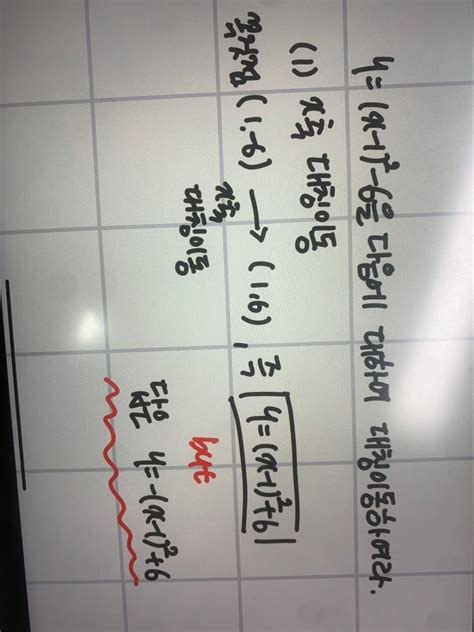 y=(x-1)²-6을 다음에 대하여 대칭이동하여라.
(1) x축 대칭이동
꼭짓점 (1,-6) → (1,6), 즉 y=(x-1)²+6
x축
대칭이동
but
답은 y=-(x-1)²+6